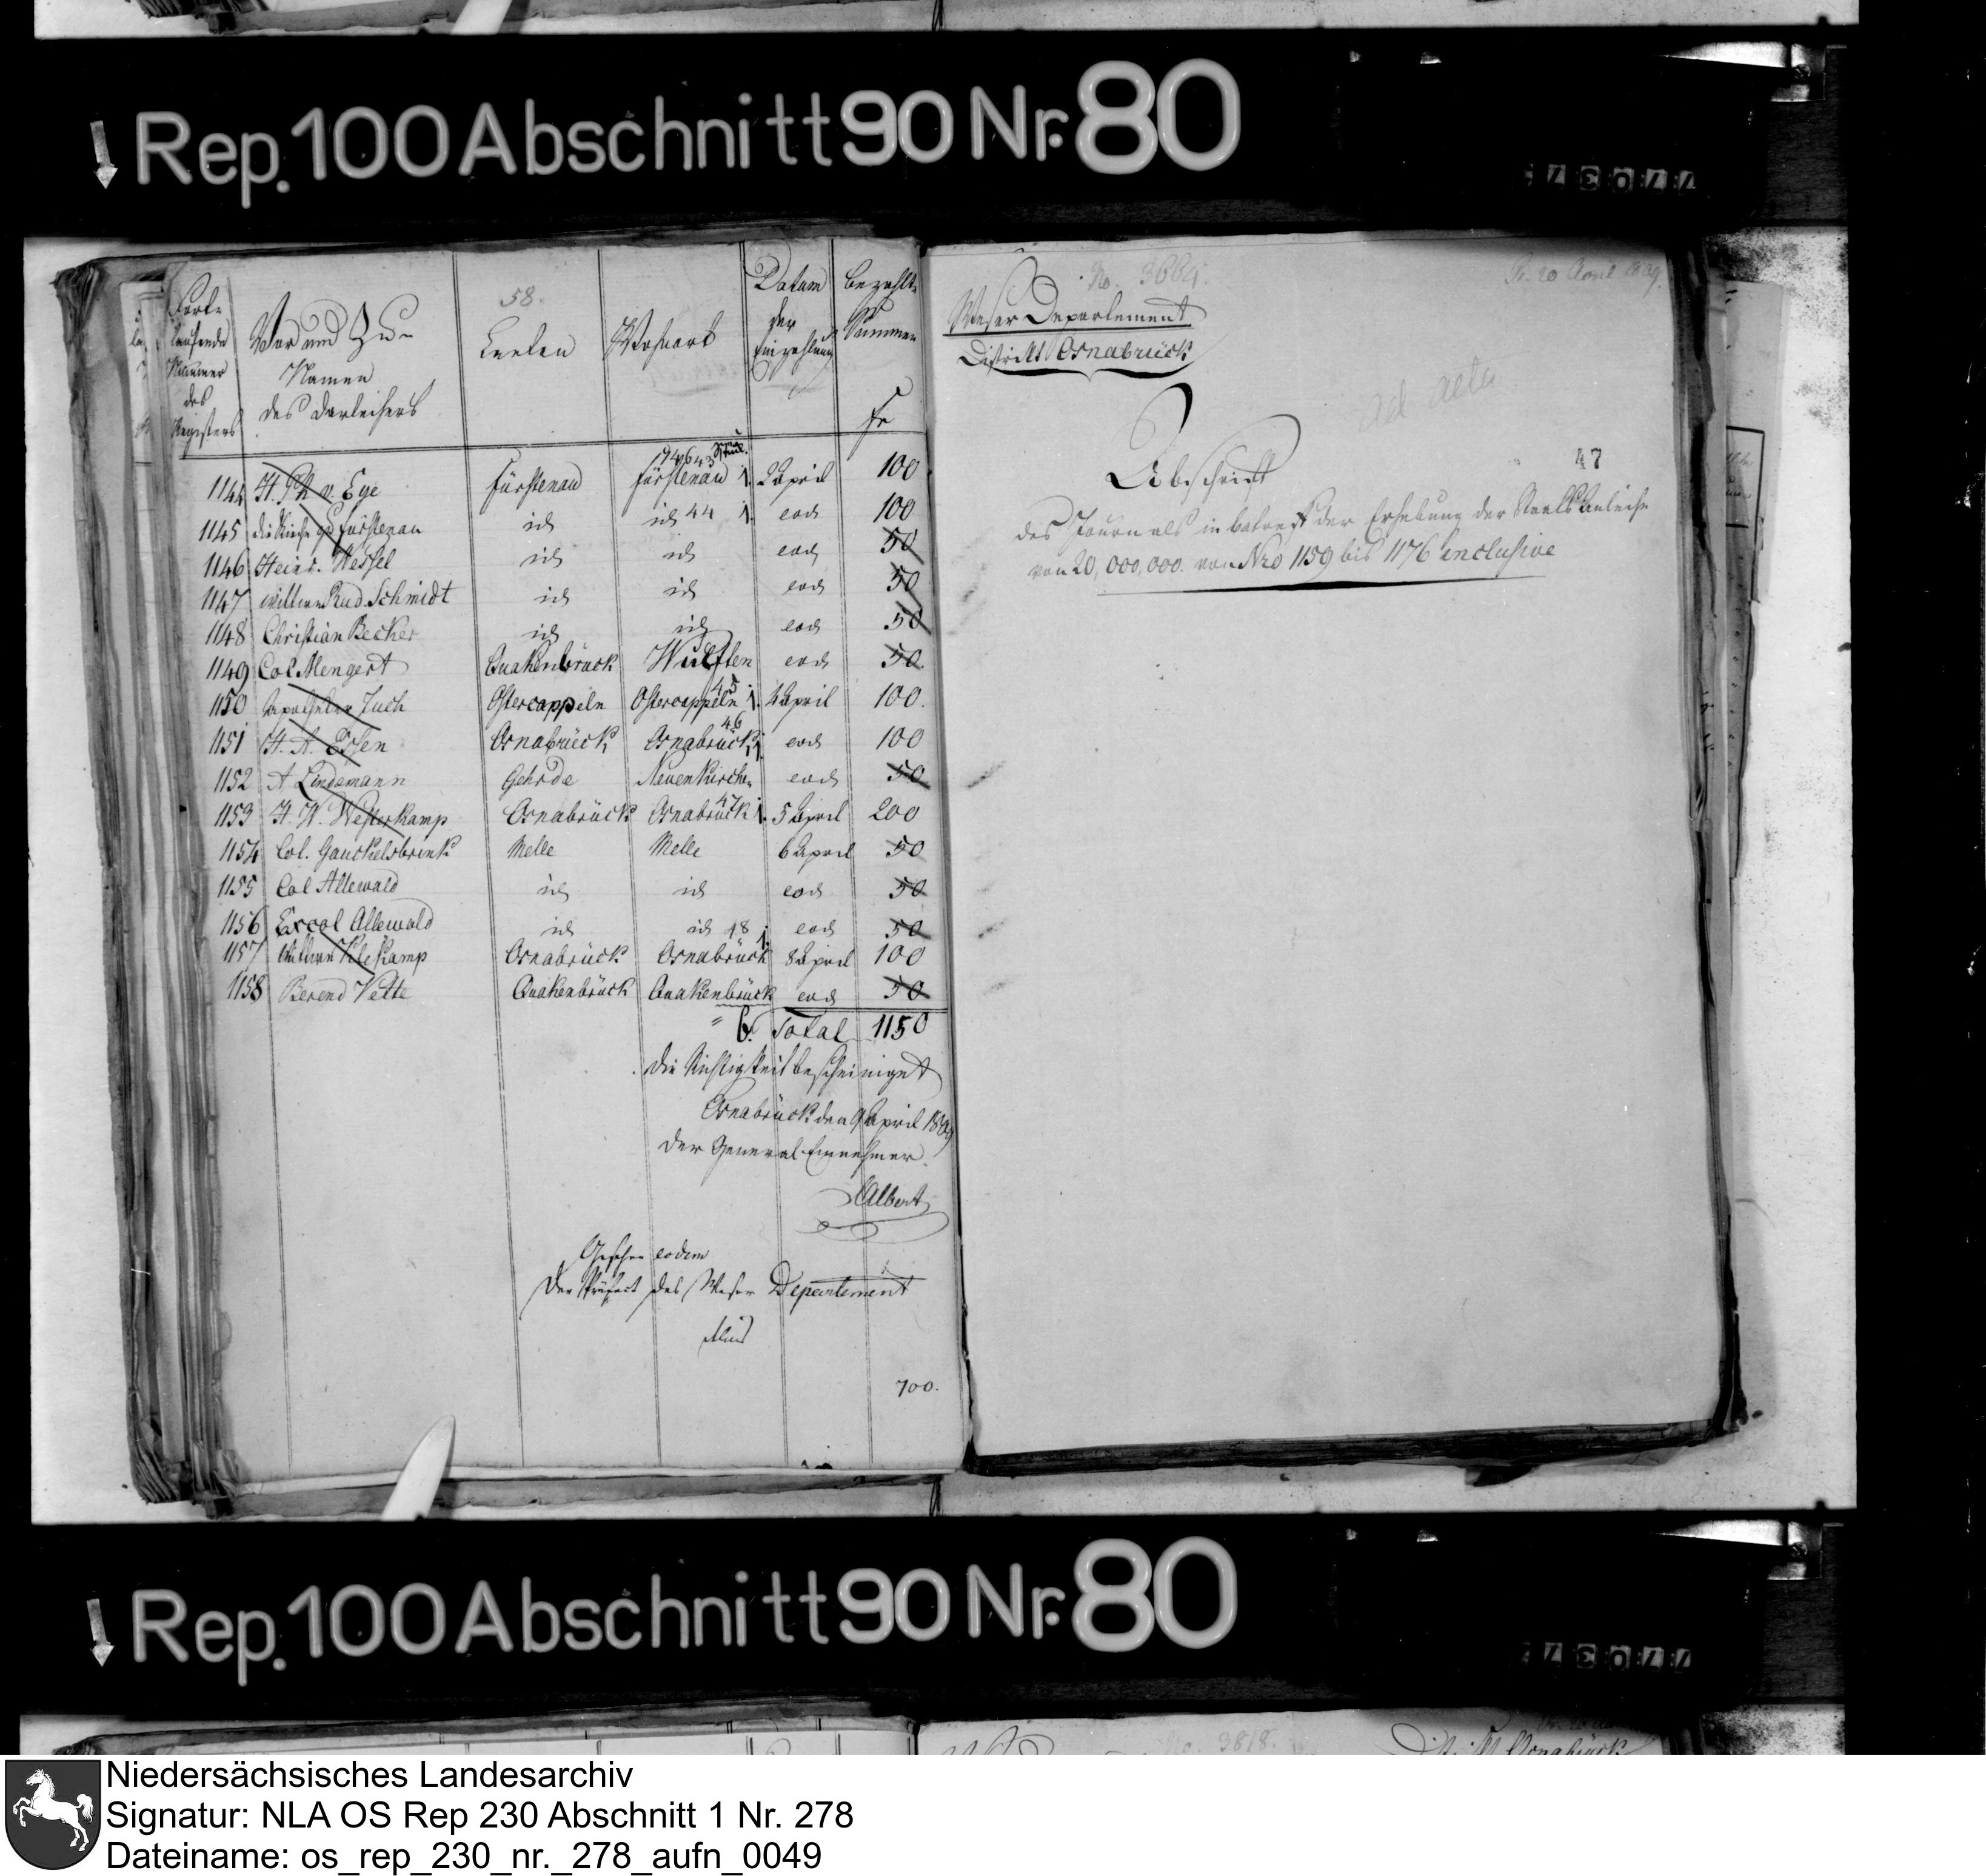 Rep. 100 Abschnitt 90 Nr. 80
Fort-
laufende
Nummer
des
Registers
Vor und Zu-
Namen
des Darleihers
58.
Canton
Wohnort
Datum
der
Einzahlung
bezahlte
Summen
fr
1144 H. Ph. v. Eye Fürstenau 19464 43 Fürstenau 1. 2 April 100
1145 die Kirche zu Fürstenau id id 44 1. eod 100
1146 Heinr. Wessel id id eod 50
1147 Wittwe Rud. Schmidt id id eod 50
1148 Christian Becker id id eod 50
1149 Col. Mengert Quakenbrück Wulften eod 50.
1150 Apotheker Juch Ostercappeln Ostercappeln 45 1. 4 April 100.
1151 H. A. Essen Osnabrück Osnabrück 46 1. eod 100
1152 A Lindemann Gehrde Neuenkirchen eod 50
1153 H. W. Westerkamp Osnabrück Osnabrück 47 1. 5 April 200
1154 Col. Gauckelsbrink Melle Melle 6 April 50
1155 Col Allewald id id eod 50
1156 Excol Allewald id id eod 50
1157 Wittwe Vilekamp Osnabrück Osnabrück 48 1. 8 April 100
1158 Berend Vette Quakenbrück Quakenbrück eod 50
6. Total 1150
Die Richtigkeit bescheiniget
Osnabrück den 9 April 1809
der General Einnehmer.
Albert
Gesehen eodem
Der Präfect des Weser Departement
700.
No. 3664.
Pr. 20 April 1809.
Weser Departement
District Osnabrück
ad acta
47
Abschrift
des Journals in betreff der Erhebung der Staats Anleihe
von 20,000,000. von Nro 1159 bis 1176 inclusive
Rep. 100 Abschnitt 90 Nr. 80
No. 3818.
District Osnabrück
Niedersächsisches Landesarchiv
Signatur: NLA OS Rep 230 Abschnitt 1 Nr. 278
Dateiname: os_rep_230_nr._278_aufn_0049